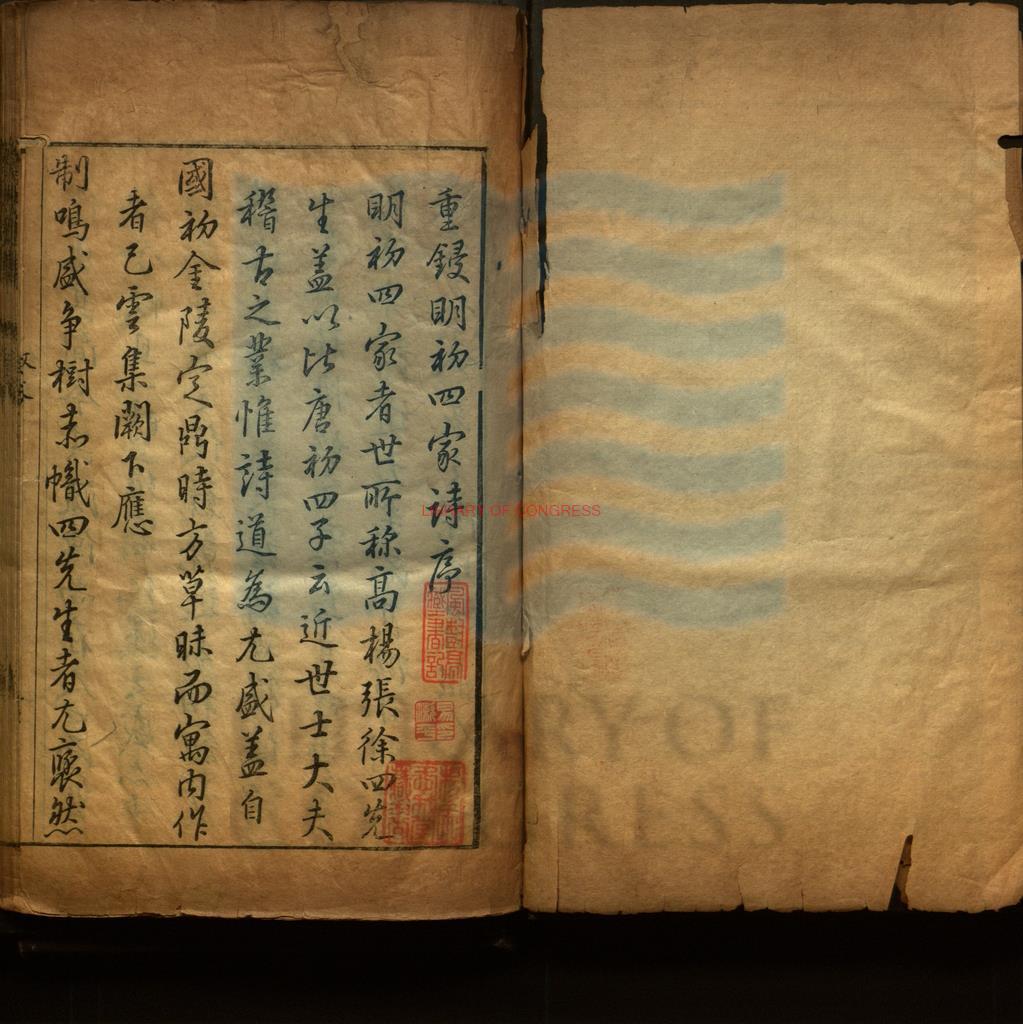 重鋟明初四家詩序
明初四家者世所稱高楊張徐四先
生蓋以比唐初四子云近世士大夫
稽古之業惟詩道為尤盛蓋自
國初金陵定鼎時方草昧而寓內作
者已雲集闕下應
制鳴盛爭樹赤幟四先生者尤褎然
LIBRARY OF CONGRESS